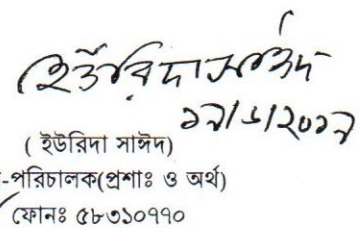 ইউরিদা সাঈদ
১৯/৬/২০১৯
( ইউরিদা সাঈদ)
-পরিচালক(প্রশাঃ ও অর্থ)
ফোনঃ ৫৮৩১০৭৭০